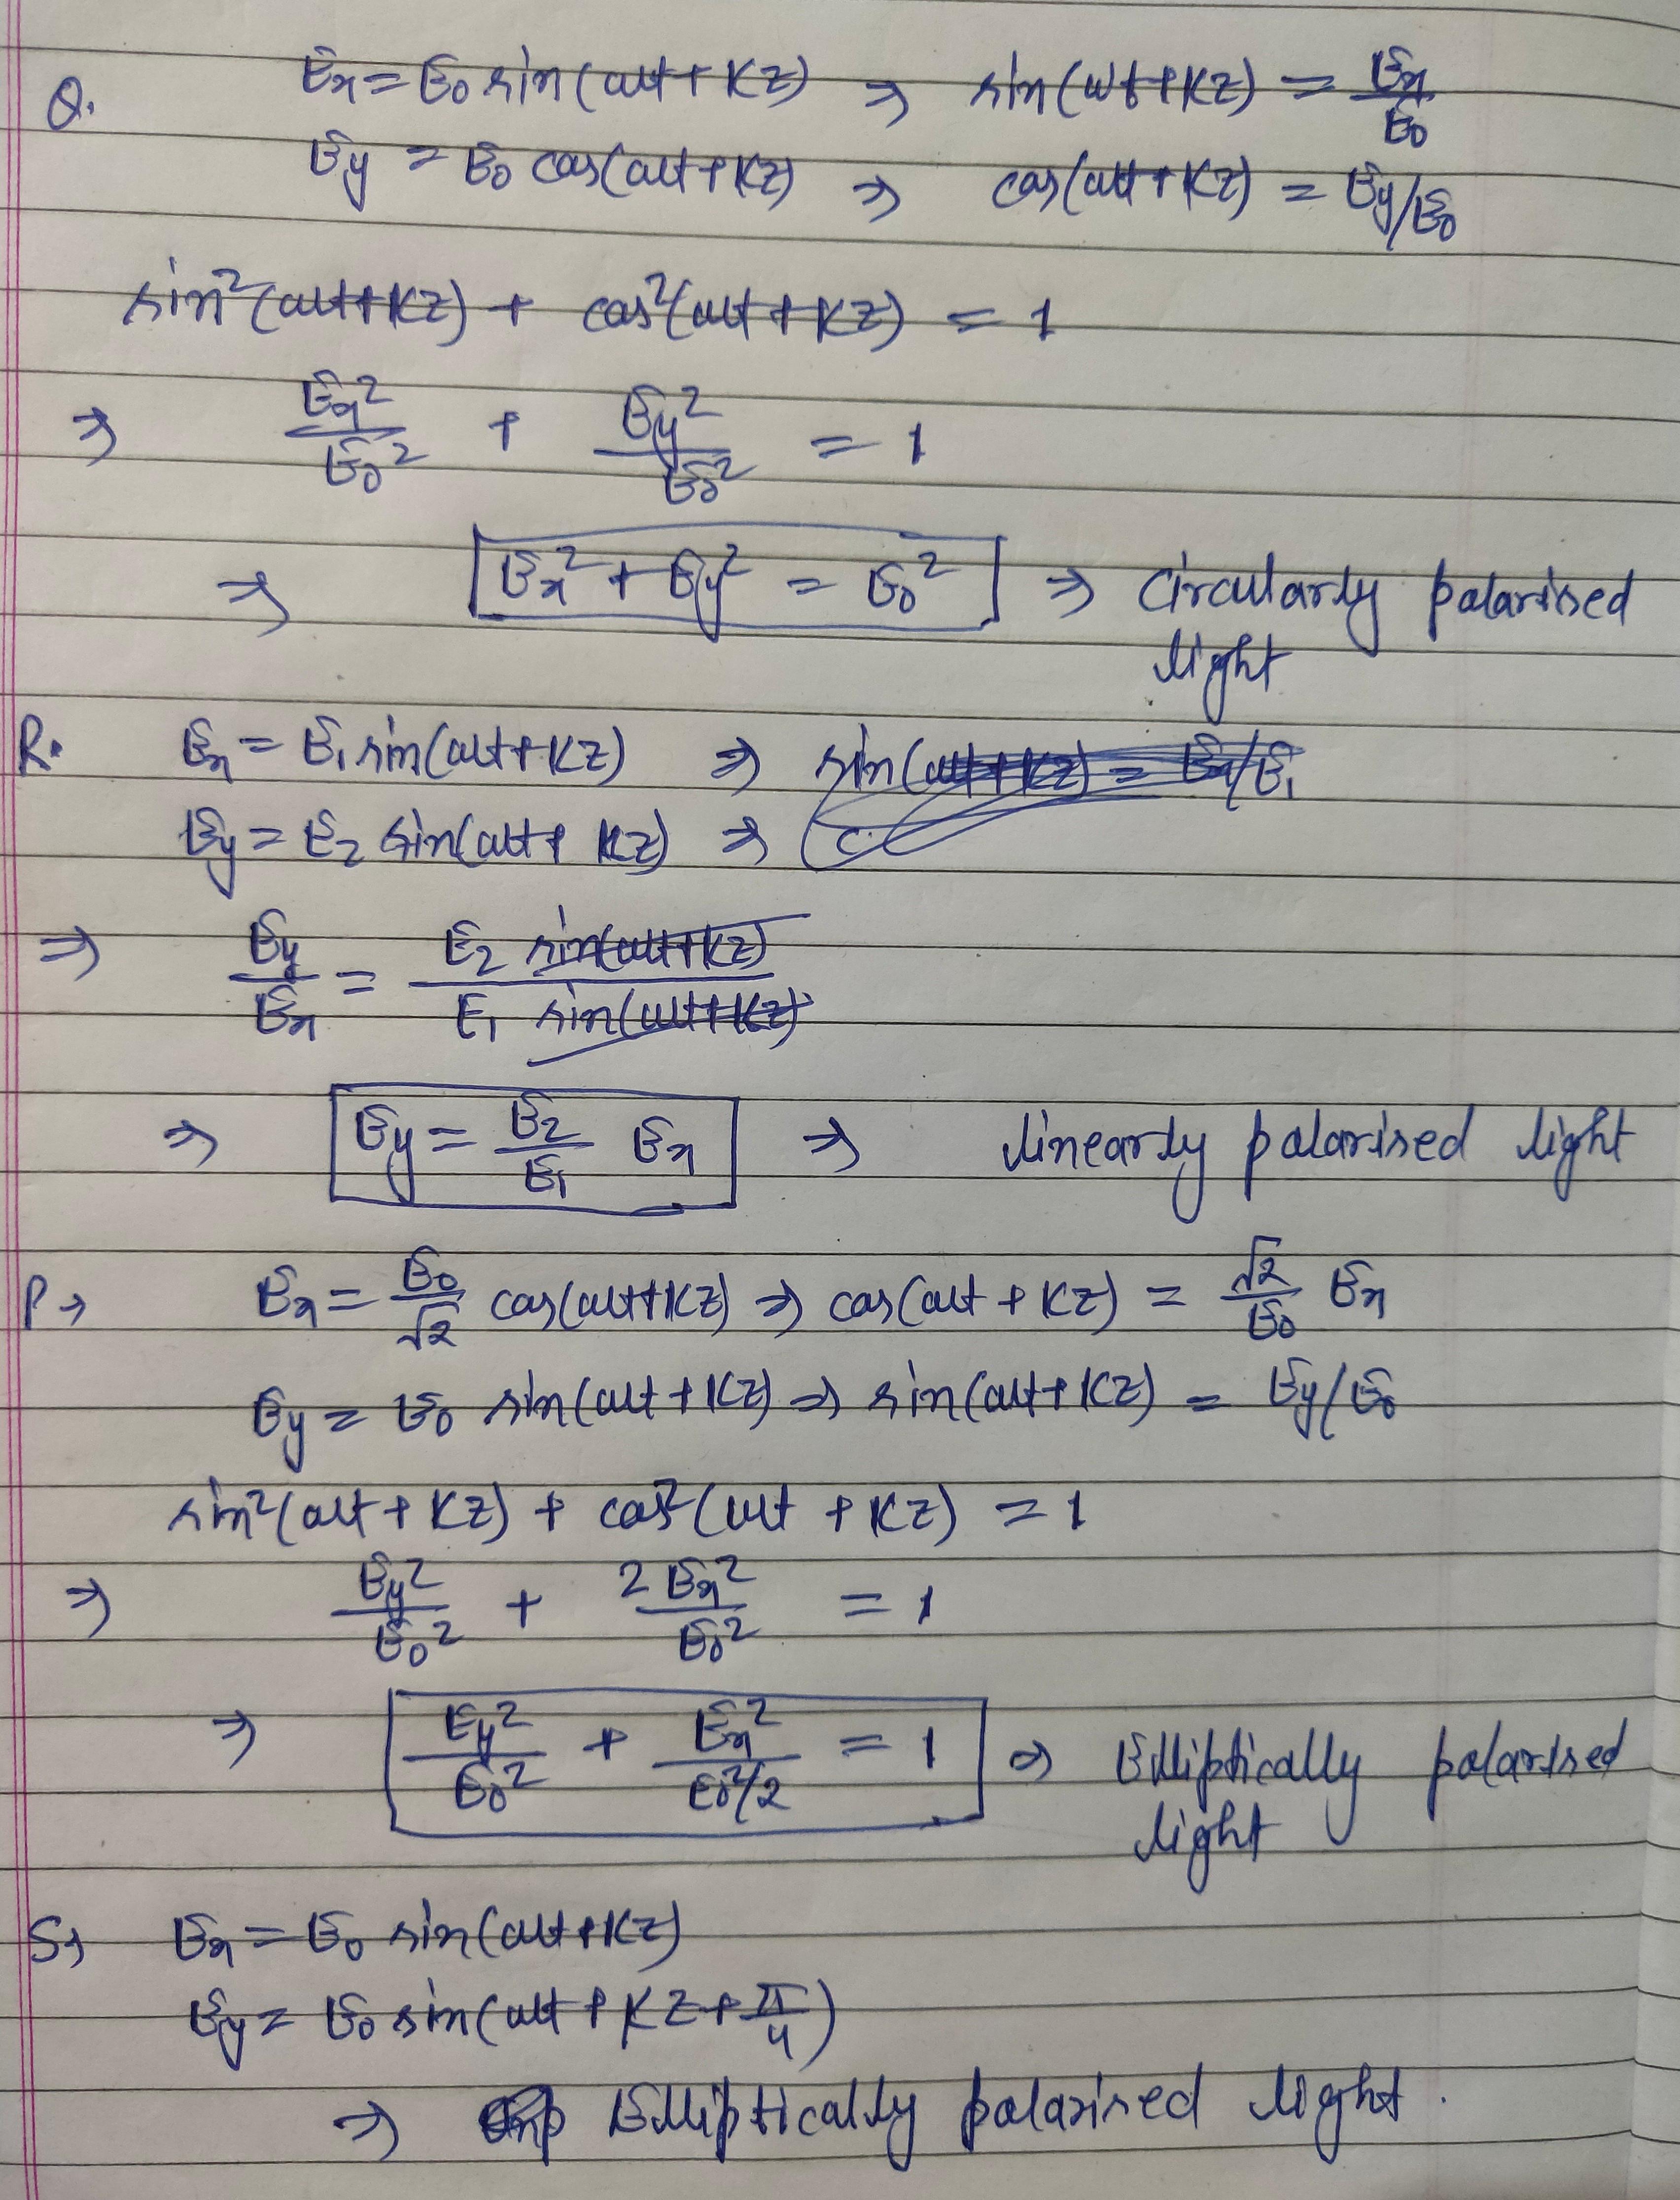 Q. Ex = E0 sin(ωt + Kz) ⇒ sin(ωt + Kz) = Ex/E0
Ey = E0 cos(ωt + Kz) ⇒ cos(ωt + Kz) = Ey/E0
sin²(ωt + Kz) + cos²(ωt + Kz) = 1
⇒ Ex²/E0² + Ey²/E0² = 1
⇒ Ex² + Ey² = E0² ⇒ Circularly polarised
light
R. Ex = E1 sin(ωt + Kz) ⇒ sin(ωt + Kz) = Ex/E1
Ey = E2 sin(ωt + Kz) ⇒
⇒ Ey/Ex = E2 sin(ωt + Kz)/E1 sin(ωt + Kz)
⇒ Ey = E2/E1 Ex ⇒ linearly polarised light
P → Ex = E0/√2 cos(ωt + Kz) ⇒ cos(ωt + Kz) = √2/E0 Ex
Ey = E0 sin(ωt + Kz) ⇒ sin(ωt + Kz) = Ey/E0
sin²(ωt + Kz) + cos²(ωt + Kz) = 1
⇒ Ey²/E0² + 2Ex²/E0² = 1
⇒ Ey²/E0² + Ex²/E0²/2 = 1 ⇒ Elliptically polarised
light
S → Ex = E0 sin(ωt + Kz)
Ey = E0 sin(ωt + Kz + π/4)
⇒ Elliptically polarised light.